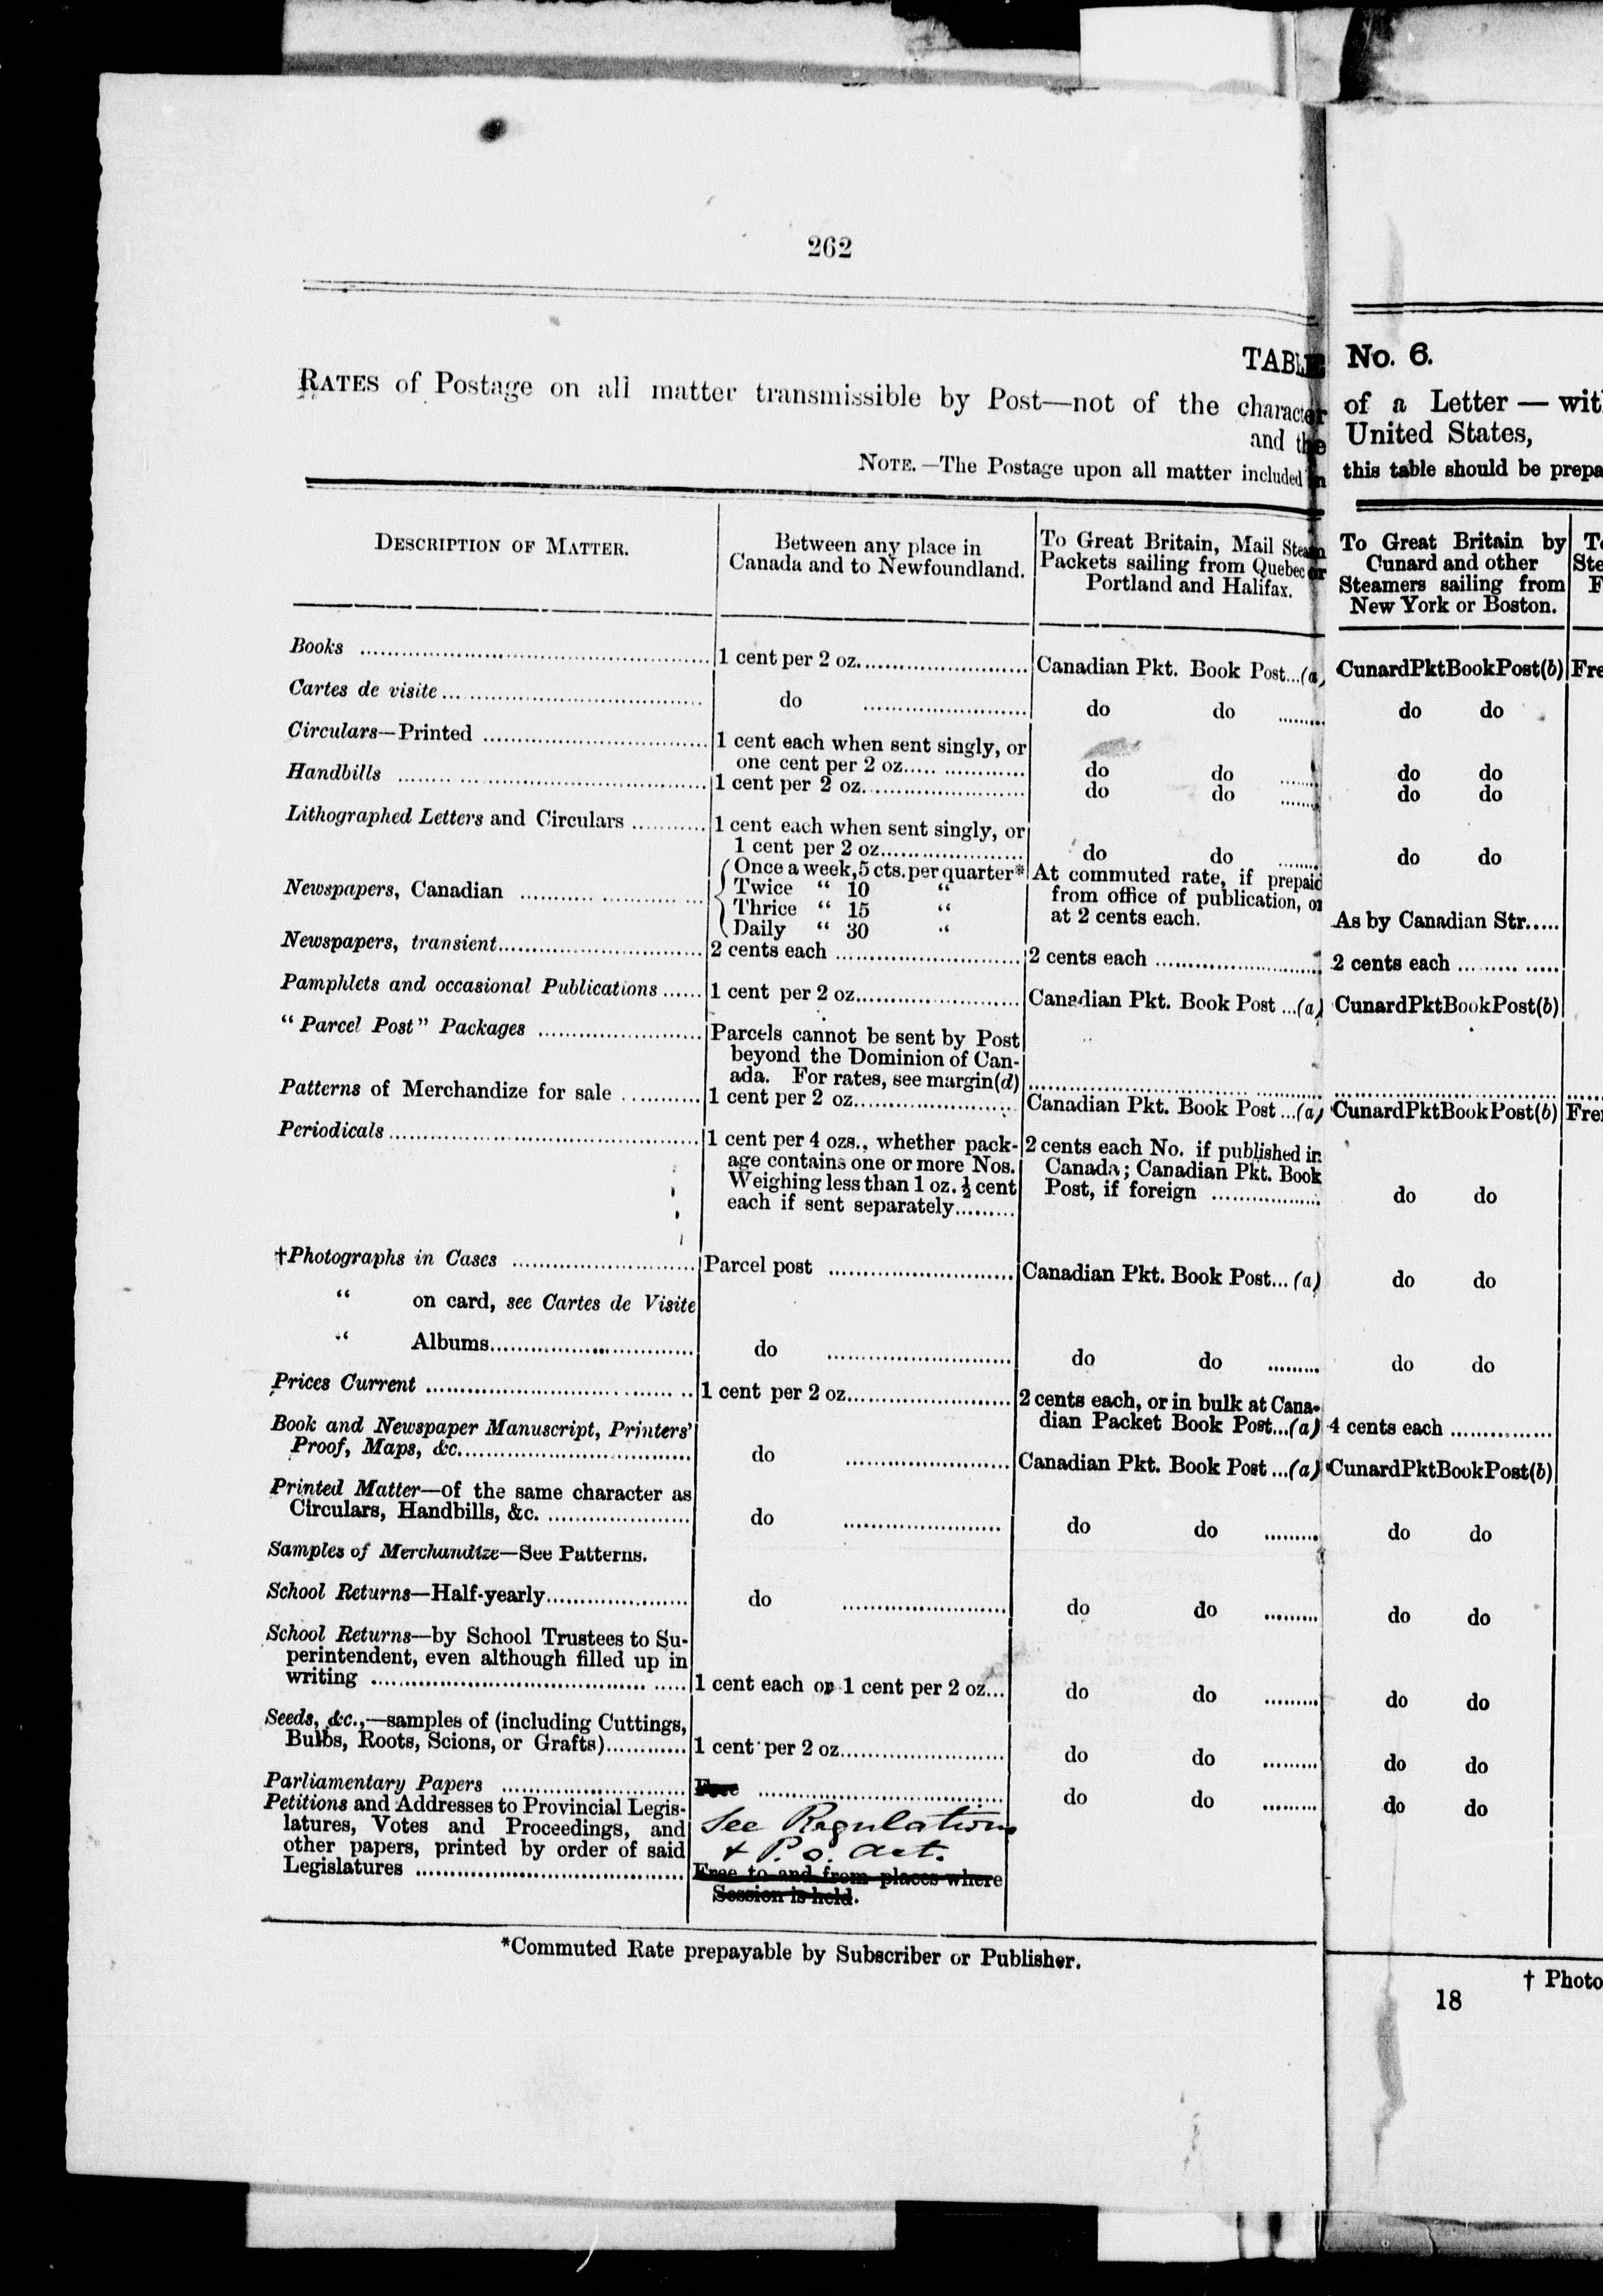 262
TABLE No. 6.
RATES of Postage on all matter transmissible by Post—not of the character of a Letter — with
and the United States,
NOTE.—The Postage upon all matter included in this table should be prepa
DESCRIPTION OF MATTER. Between any place in To Great Britain, Mail Steam To Great Britain by
Canada and to Newfoundland. Packets sailing from Quebec or Cunard and other Ste
Portland and Halifax. Steamers sailing from F
New York or Boston.
Books 1 cent per 2 oz. Canadian Pkt. Book Post...(a) CunardPktBookPost(b) Fre
Cartes de visite do do do do do
Circulars—Printed 1 cent each when sent singly, or
one cent per 2 oz. do do do do
Handbills 1 cent per 2 oz. do do do do
Lithographed Letters and Circulars 1 cent each when sent singly, or
1 cent per 2 oz. do do do do
Once a week, 5 cts. per quarter* At commuted rate, if prepaid
Newspapers, Canadian Twice “ 10 “ from office of publication, or
Thrice “ 15 “ at 2 cents each.
Daily “ 30 “ As by Canadian Str.....
Newspapers, transient 2 cents each 2 cents each 2 cents each
Pamphlets and occasional Publications 1 cent per 2 oz. Canadian Pkt. Book Post ...(a) CunardPktBookPost(b)
“Parcel Post” Packages Parcels cannot be sent by Post
beyond the Dominion of Can-
ada. For rates, see margin(d)
Patterns of Merchandize for sale 1 cent per 2 oz. Canadian Pkt. Book Post ...(a) CunardPktBookPost(b) Fre
Periodicals 1 cent per 4 ozs., whether pack- 2 cents each No. if published in
age contains one or more Nos. Canada; Canadian Pkt. Book
Weighing less than 1 oz. ½ cent Post, if foreign do do
each if sent separately
†Photographs in Cases Parcel post Canadian Pkt. Book Post... (a) do do
“ on card, see Cartes de Visite
“ Albums do do do do do
Prices Current 1 cent per 2 oz. 2 cents each, or in bulk at Cana-
dian Packet Book Post...(a) 4 cents each
Book and Newspaper Manuscript, Printers’
Proof, Maps, &c. do Canadian Pkt. Book Post ...(a) CunardPktBookPost(b)
Printed Matter—of the same character as
Circulars, Handbills, &c. do do do do do
Samples of Merchandize—See Patterns.
School Returns—Half-yearly do do do do do
School Returns—by School Trustees to Su-
perintendent, even although filled up in
writing 1 cent each or 1 cent per 2 oz... do do do do
Seeds, &c.,—samples of (including Cuttings,
Bulbs, Roots, Scions, or Grafts) 1 cent per 2 oz. do do do do
Parliamentary Papers Free do do do do
Petitions and Addresses to Provincial Legis-
latures, Votes and Proceedings, and See Regulations
other papers, printed by order of said & P. O. Act.
Legislatures Free to and from places where
Session is held.
*Commuted Rate prepayable by Subscriber or Publisher.
† Photo
18